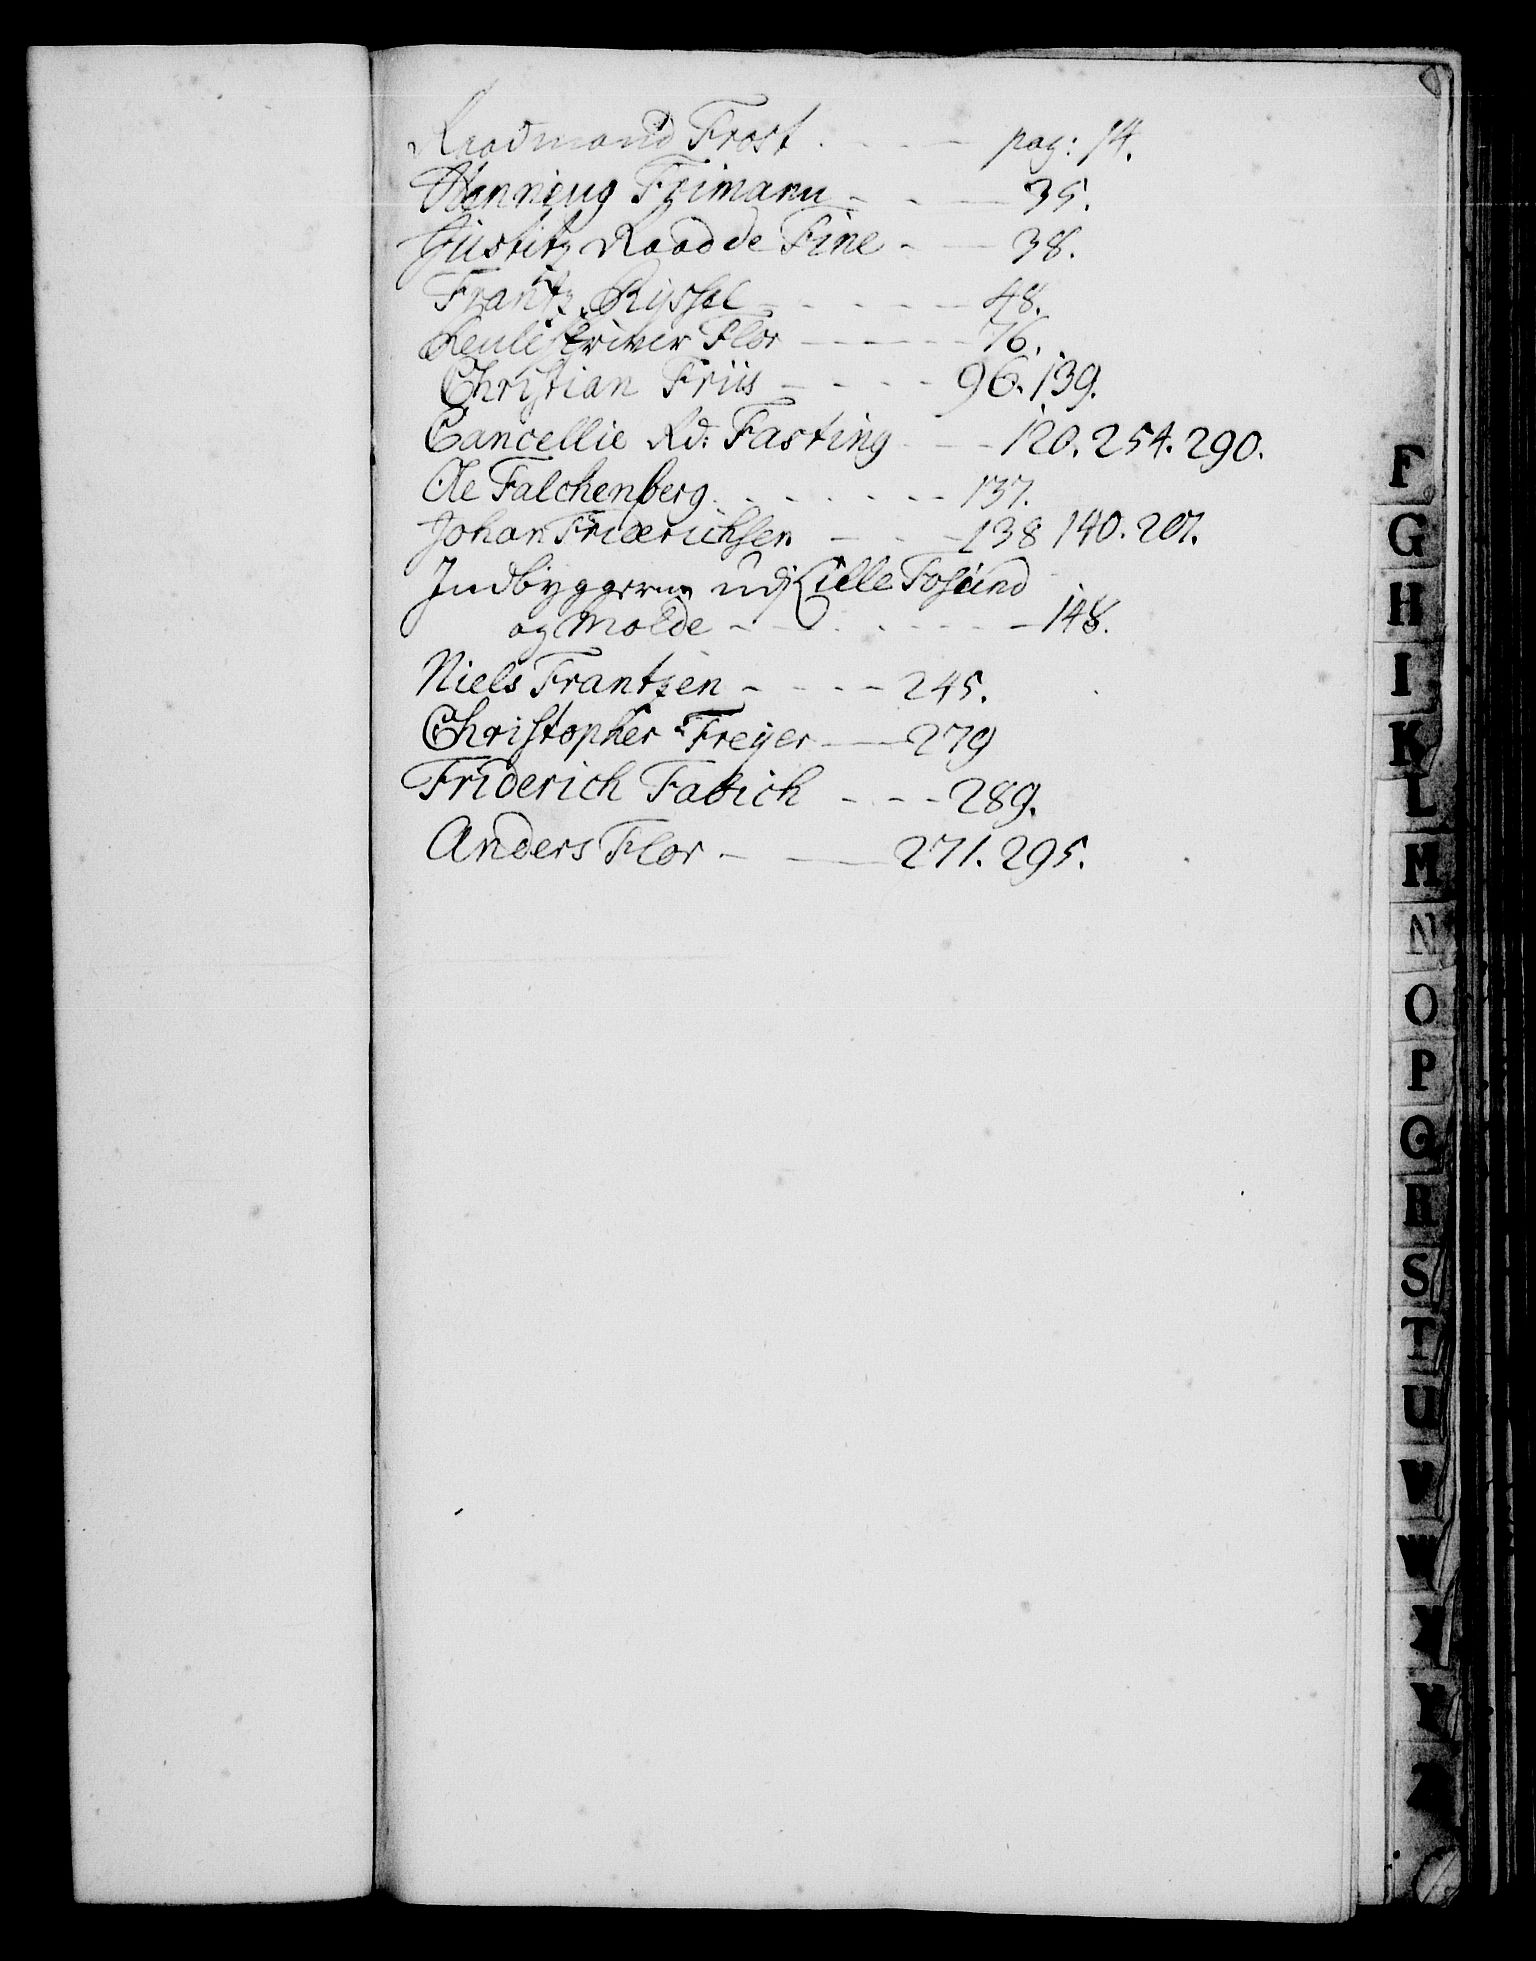 Raadmand Frost . - - - pag: 14.
Henning Frimann - - - 35.
Justitz Raad de Fine - - 38.
Frantz Ryssel - - - - - 48.
Reuteskriver Flor - - - - 76.
Christian Friis - - - - 96. 139.
Cancellie Rd: Fasting - - 120. 254. 290.
Ole Falchenberg. - - - - - 137.
Johan Friderichsen - - - 138 140. 201.
Indbyggerne udj Lille Fosund
og Molde - - - - - - - 148.
Niels Frantzen - - - - 245.
Christopher Freyer - - 279
Friderich Fabich - - - 289.
Anders Flor - - 271. 295.
F
G
H
I
K
L
M
N
O
P
Q
R
S
T
U
V
W
X
Y
Z